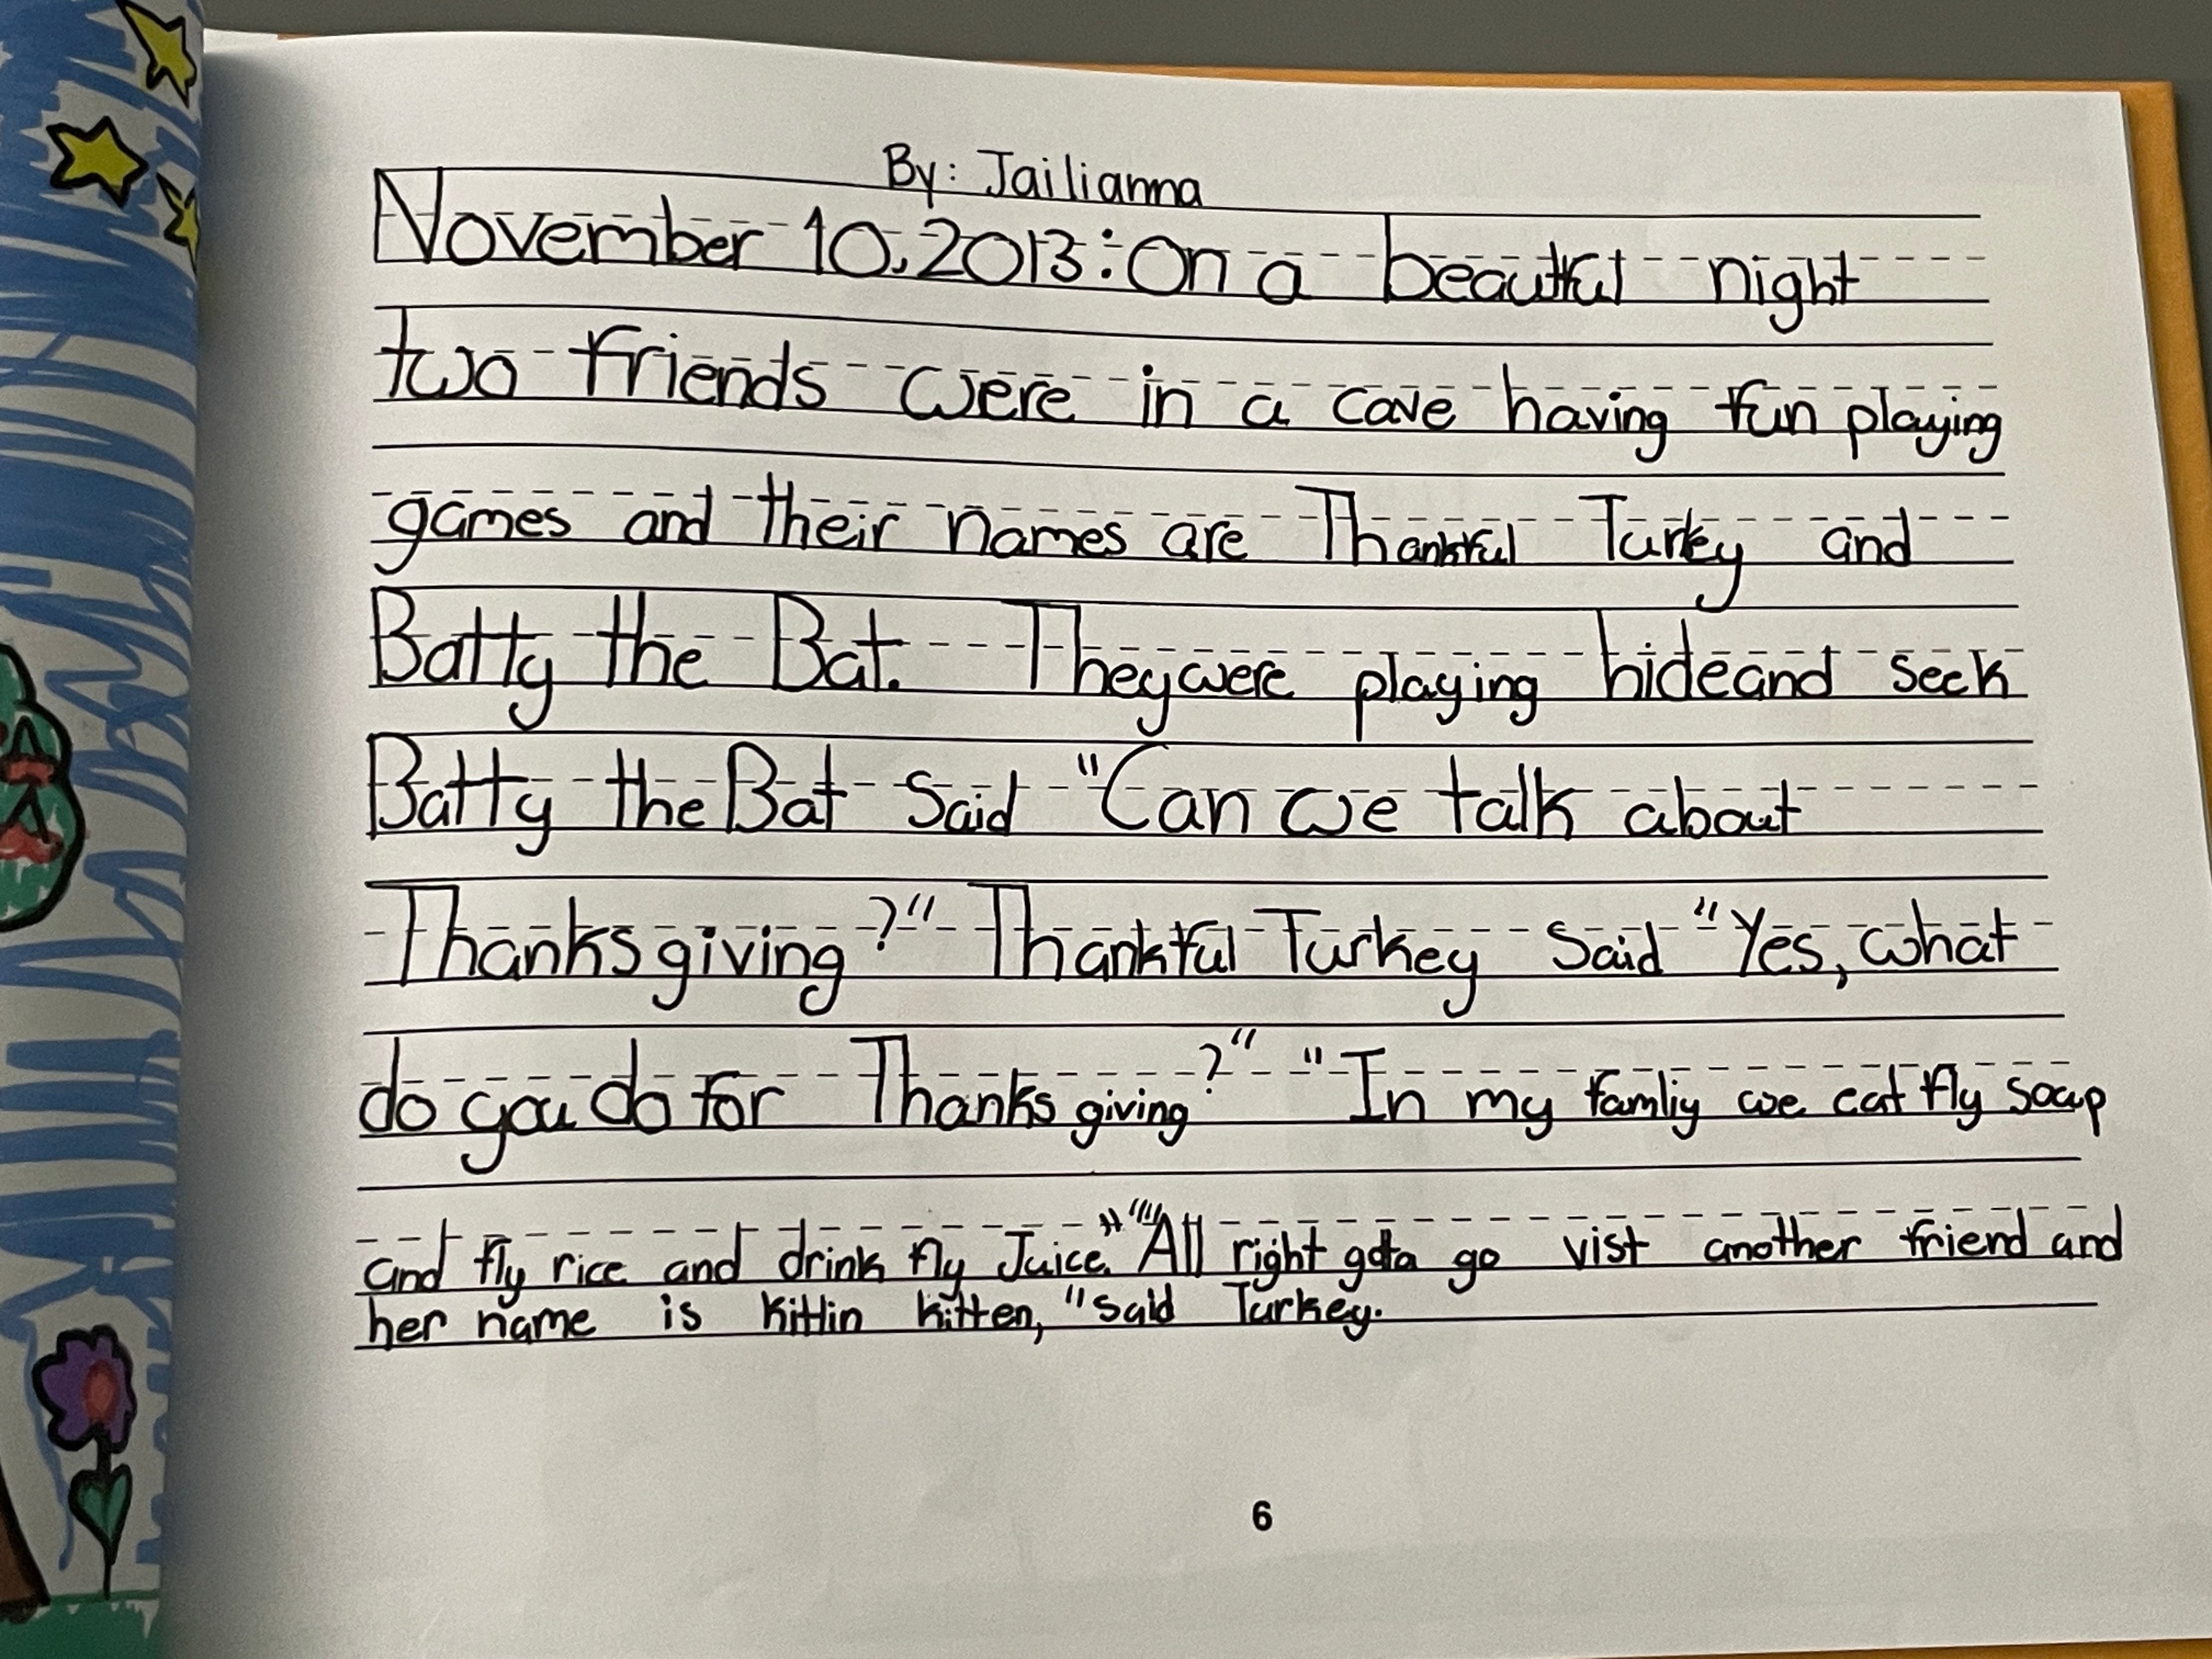 By: Jailianna
November 10, 2013: On a beautful night
two friends were in a cave having fun playing
games and their names are Thankful Turkey and
Batty the Bat. They were playing hide and seek
Batty the Bat Said "Can we talk about
Thanksgiving?" Thankful Turkey Said "Yes, what
do you do for Thanksgiving?" "In my famliy we eat fly soup
and fly rice and drink fly Juice." "All right gota go vist another friend and
her name is Kitlin kitten," said Turkey.
6